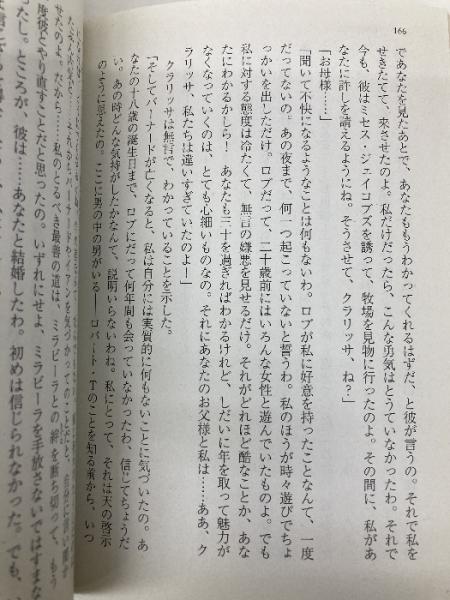 166
であなたを見たあとで、あなたももうわかってくれるはずだ、と彼が言うの。それで私を
せきたてて、来させたのよ。私だけだったら、こんな勇気はとうていなかったわ。それで
今も、彼はミセス・ジェイコブズを誘って、牧場を見物に行ったのよ。その間に、私があ
なたに許しを請えるようにね。そうさせて、クラリッサ、ね?」
「お母様……」
「聞いて不快になるようなことは何もないわ。ロブが私に好意を持ったことなんて、一度
だってないの。あの夜まで、何一つ起こっていないと誓うわ。私のほうが時々遊びでちょ
っかいを出しただけ。ロブだって、二十歳前にはいろんな女性と遊んでいたものよ。でも
私に対する態度は冷たくて、無言の嫌悪を見せるだけ。それがどれほど酷なことか、あな
たにわかるかしら! あなたも三十を過ぎればわかるけれど、しだいに年を取って魅力が
なくなっていくのは、とても心細いものなの。それにあなたのお父様と私は……ああ、ク
ラリッサ、私たちは違いすぎていたのよ!」
クラリッサは無言で、わかっていることを示した。
「そしてバーナードが亡くなると、私は自分には実質的に何もないことに気づいたの。あ
なたの十八歳の誕生日まで、ロブにだって何年間も会っていなかったわ、信じてちょうだ
い。あの時どんな気持がしたかなんて、説明いらないわね。私にとって、それは天の啓示
のように思えたの。ここに男の中の男がいる――ロバート・Tのことを知る前から、いつ
せたのよ。だから……私のとるべき最善の道は、ミラビーラとの絆を断ち切って、もう
度彼とやり直すことだと思ったの。いずれにせよ、ミラビーラを手放さないではすまな
たし。ところが、彼は……あなたと結婚したわ。初めは信じられなかった。でも、